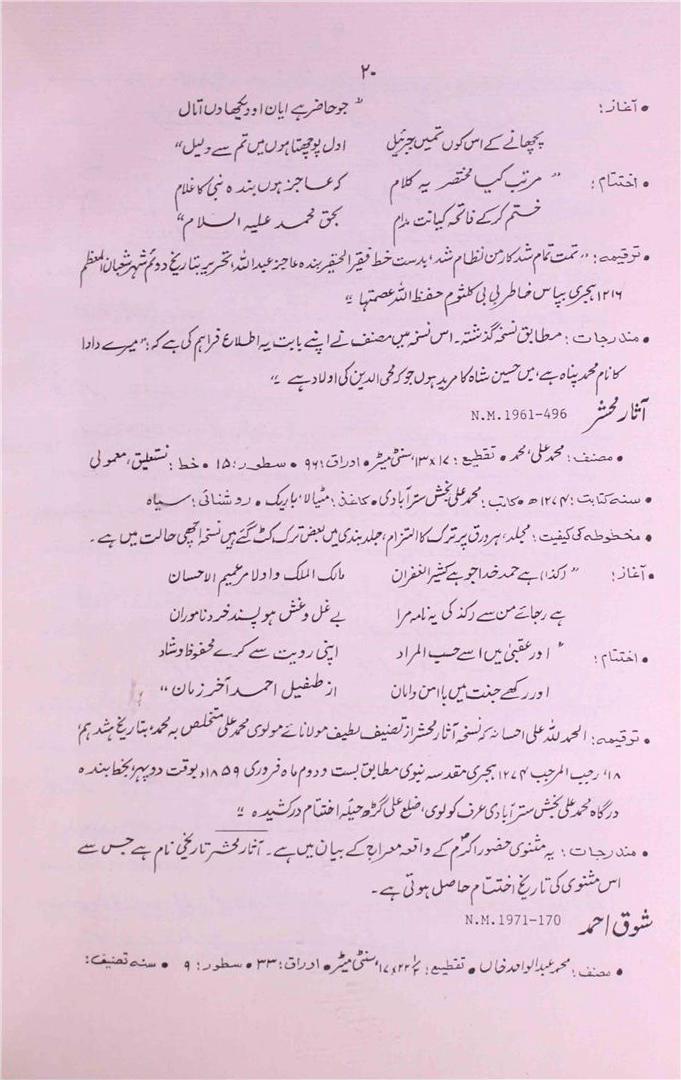 ۲۰
• آغاز: " جو حاضر ہے ایان او دیکھا دں اتال
پچھانے کے اس کوں تمیں جبرئیل اول پوچھتا ہوں میں تم سے دلیل"
• اختتام: " مرتب کیا مختصر یہ کلام کہ عاجز ہوں بندہ نبی کا غلام
ختم کر کے فاتحہ کیانت مدام بحق محمد علیہ السلام"
• ترقیمہ: "تمت تمام شد کار من نظام شد، بدست خط فقیر الحقیر بندہ عاجز عبداللہ، تحریر بتاریخ دوئم شہر شعبان المعظم
۱۲۱۶ ہجری بپاس خاطر بی بی کلثوم حفظ اللہ عصمتہا"
• مندرجات: مطابق نسخہ گذشتہ۔ اس نسخہ میں مصنف نے اپنے بابت یہ اطلاع فراہم کی ہے کہ: "میرے دادا
کا نام محمد پناہ ہے، میں حسین شاہ کا مرید ہوں جو کہ محی الدین کی اولاد ہے"۔
آثار محشر N.M.1961-496
• مصنف: محمد علی، محمد • تقطیع: ۱۷x۱۳، سنٹی میٹر • اوراق: ۹۶ • سطور: ۱۵ • خط: نستعلیق، معمولی
• سنہ کتابت: ۱۲۷۴ھ • کاتب: محمد علی بخش سترآبادی • کاغذ: مٹیالا، باریک • روشنائی: سیاہ
• مخطوطہ کی کیفیت: مجلد، ہر ورق پر ترک کا التزام، جلد بندی میں بعض ترک کٹ گئے ہیں نسخہ اچھی حالت میں ہے۔
• آغاز: " (کذا) ہے حمد خدا جو ہے کثیر الغفران مالک الملک واولا مر عمیم الاحسان
ہے رجائے من سے رکذ کی یہ نامہ مرا بے غل و غش ہو پسند خرد ناموران
• اختتام: " اور عقبیٰ میں اسے حسب المراد اپنی رویت سے کرے محفوظ و شاد
اور رکھے جنت میں با امن و امان از طفیل احمد آخر زمان"
• ترقیمہ: الحمد للہ علی احسانہ کہ نسخہ آثار محشر از تصنیف لطیف مولانائے مولوی محمد علی متخلص بہ محمد، بتاریخ ہشدہم،
۱۸، رجب المرجب ۱۲۷۴ ہجری مقدسہ نبوی مطابق بست و دوم ماہ فروری ۱۸۵۹ء بوقت دوپہر بخط بندہ
درگاہ محمد علی بخش سترآبادی عرف کولوی، ضلع علی گڑھ حیلہ اختتام درکشیدہ"
• مندرجات: یہ مثنوی حضور اکرمؐ کے واقعہ معراج کے بیان میں ہے۔ آثار محشر تاریخی نام ہے جس سے
اس مثنوی کی تاریخ اختتام حاصل ہوتی ہے۔
شوق احمد N.M.1971-170
• مصنف: محمد عبدالواحد خاں • تقطیع: ۲۲x۱۷، سنٹی میٹر • اوراق: ۳۳ • سطور: ۹ • سنہ تصنیف: